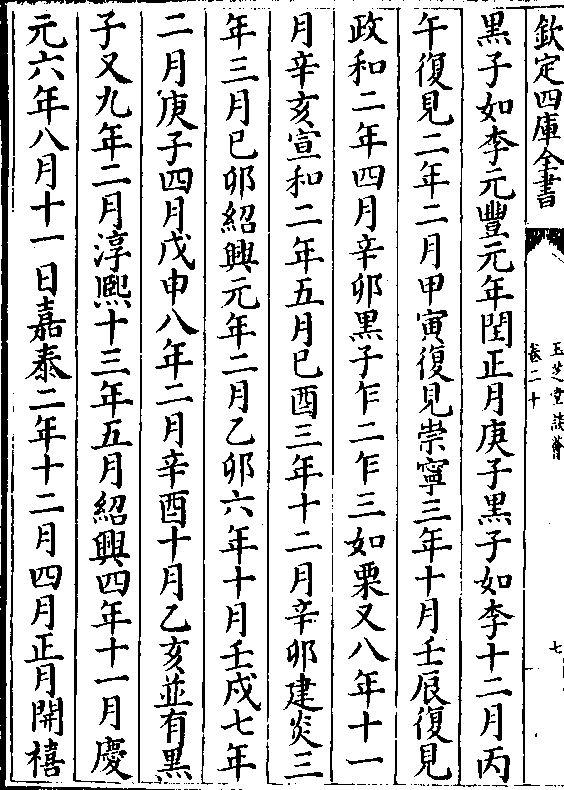 欽定四庫全書
玉芝堂談薈
卷二十
七
黒子如李元豐元年閏正月庚子黒子如李十二月丙
午復見二年二月甲寅復見崇寧三年十月壬辰復見
政和二年四月辛卯黒子乍二乍三如栗又八年十一
月辛亥宣和二年五月已酉三年十二月辛卯建炎三
年三月已卯紹興元年二月乙卯六年十月壬戌七年
二月庚子四月戊申八年二月辛酉十月乙亥並有黒
子又九年二月淳熈十三年五月紹興四年十一月慶
元六年八月十一日嘉泰二年十二月四月正月開禧